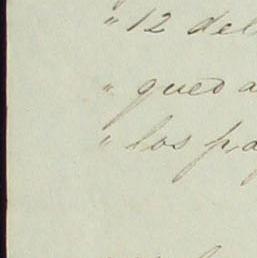 " 12 del
" qued a
" los pa